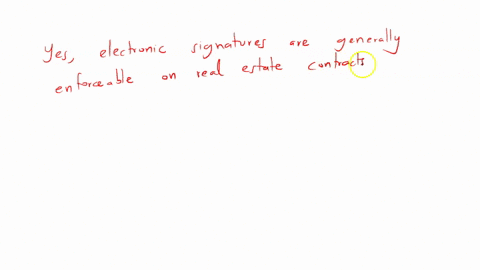 Yes, electronic signatures are generally
enforceable on real estate contracts